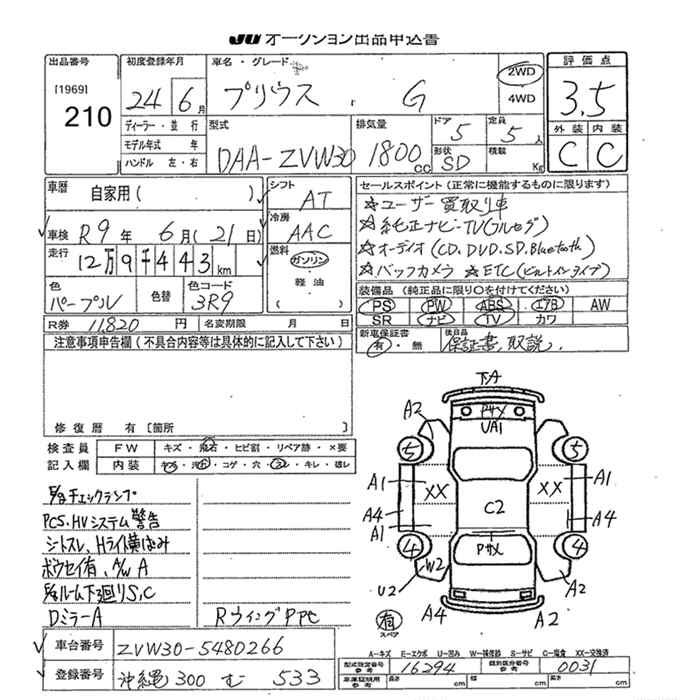 JU オークション出品申込書
出品番号
[1969]
210
初度登録年月
24年6月
ディーラー・並行
モデル年式 年
ハンドル 左・右
車名・グレード
プリウス G
2WD
4WD
型式
DAA-ZVW30
排気量
1800cc
ドア
5
定員
5人
形状
SD
積載
Kg
評価点
3.5
外装 内装
C C
車歴
自家用( )
車検 R9年 6月(21日)
走行
12万9千443km
色
パープル
色替
色コード
3R9
シフト
AT
冷房
AAC
燃料
ガソリン
軽油
( )
R券 11820円 名変期限 月 日
セールスポイント(正常に機能するものに限ります)
☆ユーザー買取り車
☆純正ナビ・TV(フルセグ)
☆オーディオ(CD.DVD.SD.Bluetooth)
☆バックカメラ ☆ETC(ビルトインタイプ)
装備品(純正品に限り○を付けてください)
PS PW ABS エアB AW
SR ナビ TV カワ
新車保証書
有・無
後日品
保証書、取説.
注意事項申告欄(不具合内容等は具体的に記入して下さい)
修復歴 有[箇所 ]
検査員
記入欄
FW キズ・飛石・ヒビ割・リペア跡・×要
内装 キズ・汚れ・コゲ・穴・スレ・キレ・破レ
チェックランプ
PCS.HVシステム警告
シートスレ、Hライト黄ばみ
ボウセイ有、A/W A
ルーム下廻りS,C
DミラーA
RウイングPPC
車台番号 ZVW30-5480266
登録番号 沖縄 300 む 533
下A
Pサメ
UA1
A2
5
5
A1
XX
XX
A1
A4
C2
A4
A1
4
Pサメ
4
W2
U2
A2
A4
A2
有
スペア
A-キズ E-エクボ U-凹み W-補修跡 S-サビ C-腐食 XX-交換済
型式指定番号
参考
16294
類別区分番号
参考
0031
車庫証明用
参考
長さ cm 幅 cm 高さ cm